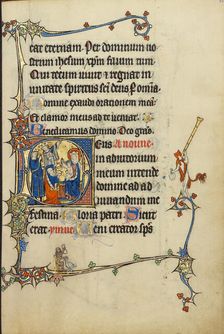 cat eternam. Per dominum no
strum ihesum xpm filium tuum
Qui tecum vivit et regnat in
unitate spiritus sancti deus P omia
Domine exaudi orationem mea
Et clamor meus ad te veniat
Benedicamus domino Deo gras
Deus A nonne
in adiutorium
meum intende
Domine ad ad
iuvandum me
festina Gloria patri Sicut
erat Veni creator sps